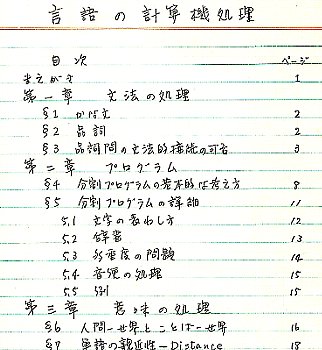 言語の計算機処理
目次 ページ
まえがき 1
第一章 文法の処理
§1 かな文 2
§2 品詞 2
§3 品詞間の文法的接続の可否 3
第二章 プログラム
§4 分割プログラムの基本的な考え方 8
§5 分割プログラムの詳細 11
5.1 文字の表わし方 12
5.2 辞書 13
5.3 多重度の問題 14
5.4 音便の処理 15
5.5 例 15
第三章 意味の処理
§6 人間―世界とことば―世界 16
§7 単語の親近性―Distance 18